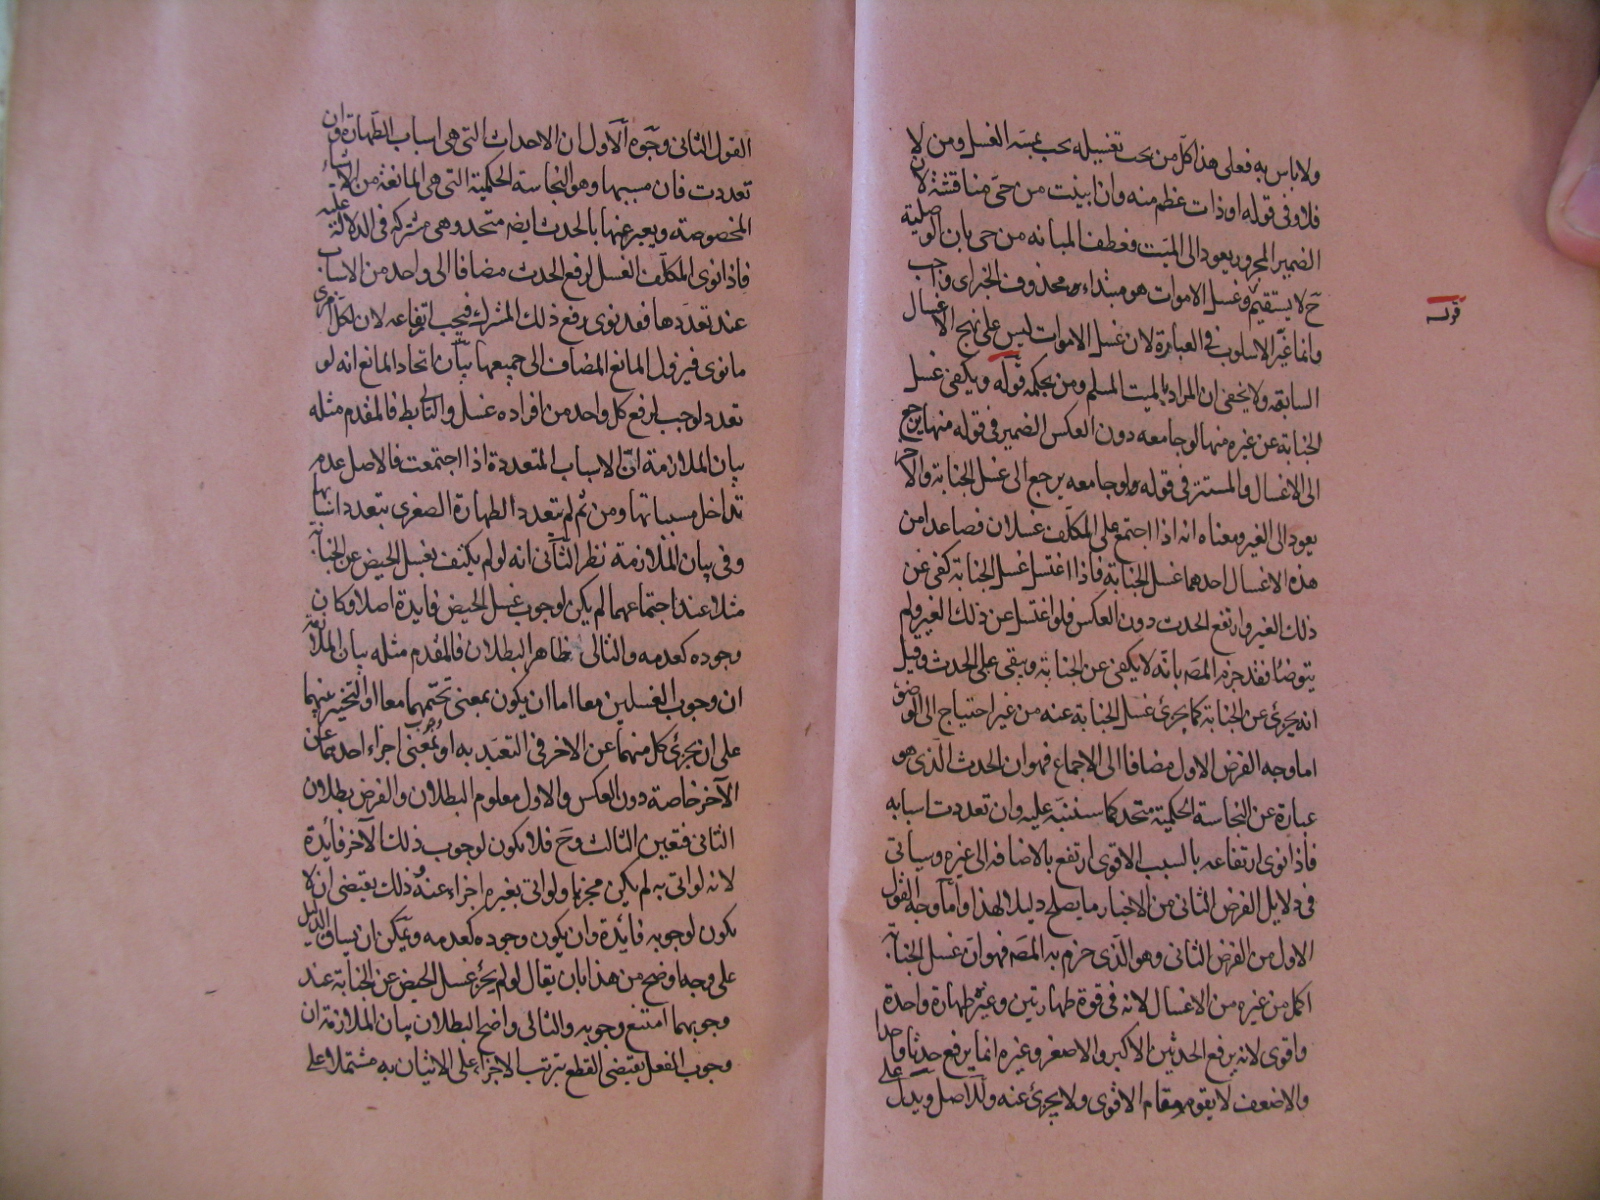 ولا باس به فعلى هذا كل من يجب تغسيله يجب بمسه الغسل ومن لا
فلا وفى قوله او ذات عظم منه وان ابينت من حى مناقشة لان
الضمير المجرور يعود الى الميت فعطف المبانه من حى بان الوصلية
ح لا يستقيم وغسل الاموات هو مبتداء محذوف الخبر اى واجب
وانما غير الاسلوب فى العبارة لان غسل الاموات ليس على نهج الاغسال
السابقه ولا يخفى ان المراد بالميت المسلم ومن بحكمه قوله ويكفى غسل
الجنابة عن غيره منها لو جامعه دون العكس الضمير فى قوله منها يرجع
الى الاغسال والمستتر فى قوله لو جامعه يرجع الى غسل الجنابة والاخر
يعود الى الغير ومعناه انه اذا اجتمع على المكلف غسلان فصاعدا من
هذه الاغسال احدهما غسل الجنابة فاذا اغتسل غسل الجنابة كفى عن
ذلك الغير وارتفع الحدث دون العكس فلو اغتسل عن ذلك الغير ولم
يتوضا فقد جزم المصه بانه لا يكفى عن الجنابة ويبقى على الحدث وقيل
انه يجزئ عن الجنابة كما يجزئ غسل الجنابة عنه من غير احتياج الى الوضوء
اما وجه الفرض الاول مضافا الى الاجماع فهو ان الحدث الذى هو
عبارة عن النجاسة الحكمية متحد كما سننبه عليه وان تعددت اسبابه
فاذا نوى ارتفاعه بالسبب الاقوى ارتفع بالاضافه الى غيره وسياتى
فى دلايل الفرض الثانى من الاخبار ما يصلح دليلا لهذا واما وجه القول
الاول من الفرض الثانى وهو الذى جزم به المصه فهو ان غسل الجنابة
اكمل من غيره من الاغسال لانه فى قوة طهارتين وغيره طهارة واحدة
واقوى لانه يرفع الحدثين الاكبر والاصغر وغيره انما يرفع حدثا واحدا
والاضعف لا يقوم مقام الاقوى ولا يجزئ عنه وللاصل ويدل على
قوله
القول الثانى وجوه الاول ان الاحداث التى هى اسباب الطهارة وان
تعددت فان مسببها وهو النجاسة الحكمية التى هى المانعة من الاشياء
المخصوصة ويعبر عنها بالحدث ايضا متحد وهى مشتركه فى الدلالة عليه
فاذا نوى المكلف الغسل لرفع الحدث مضافا الى واحد من الاسباب
عند تعددها فقد نوى رفع ذلك المشترك فيجب ارتفاعه لان لكل امرئ
ما نوى فيزول المانع المضاف الى جميعها بيان اتحاد المانع انه لو
تعدد لوجب لرفع كل واحد من افراده غسل والتالى بط فالمقدم مثله
بيان الملازمة ان الاسباب المتعددة اذا اجتمعت فالاصل عدم
تداخل مسبباتها ومن ثم لم يتعدد الطهارة الصغرى بتعدد اسبابها
وفى بيان الملازمة نظر الثانى انه لو لم يكتف بغسل الحيض عن الجنابة
مثلا عند اجتماعهما لم يكن لوجوب غسل الحيض فايدة اصلا وكان
وجوده كعدمه والتالى ظاهر البطلان فالمقدم مثله بيان الملازمة
ان وجوب الغسلين معا اما ان يكون بمعنى تحتمهما معا او التخيير بينهما
على ان يجزئ كل منهما عن الاخر فى التعبد به او بمعنى وجوب اجزاء احدهما عن
الآخر خاصة دون العكس والاول معلوم البطلان والفرض بطلان
الثانى فتعين الثالث وح فلا يكون لوجوب ذلك الآخر فائدة
لانه لو اتى به لم يكن مجزيا ولو اتى بغيره اجزاء عنه وذلك يقتضى ان لا
يكون لوجوبه فائدة وان يكون وجوده كعدمه ويمكن ان يساق الدليل
على وجه اوضح من هذا بان يقال لو لم يجز غسل الحيض عن الجنابة عند
وجوبهما امتنع وجوبه والتالى واضح البطلان بيان الملازمة ان
وجوب الفعل يقتضى القطع بترتب الاجزاء على الاتيان به مشتملا على